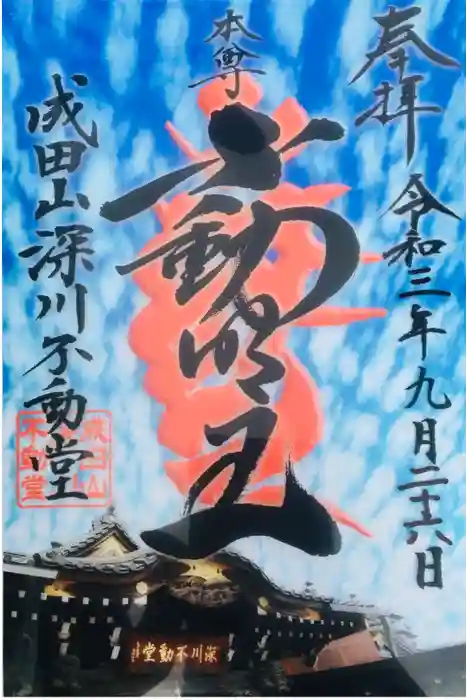 奉拝
令和三年九月二十六日
本尊
不動明王
成田山深川不動堂
成田山
不動堂
深川不動堂